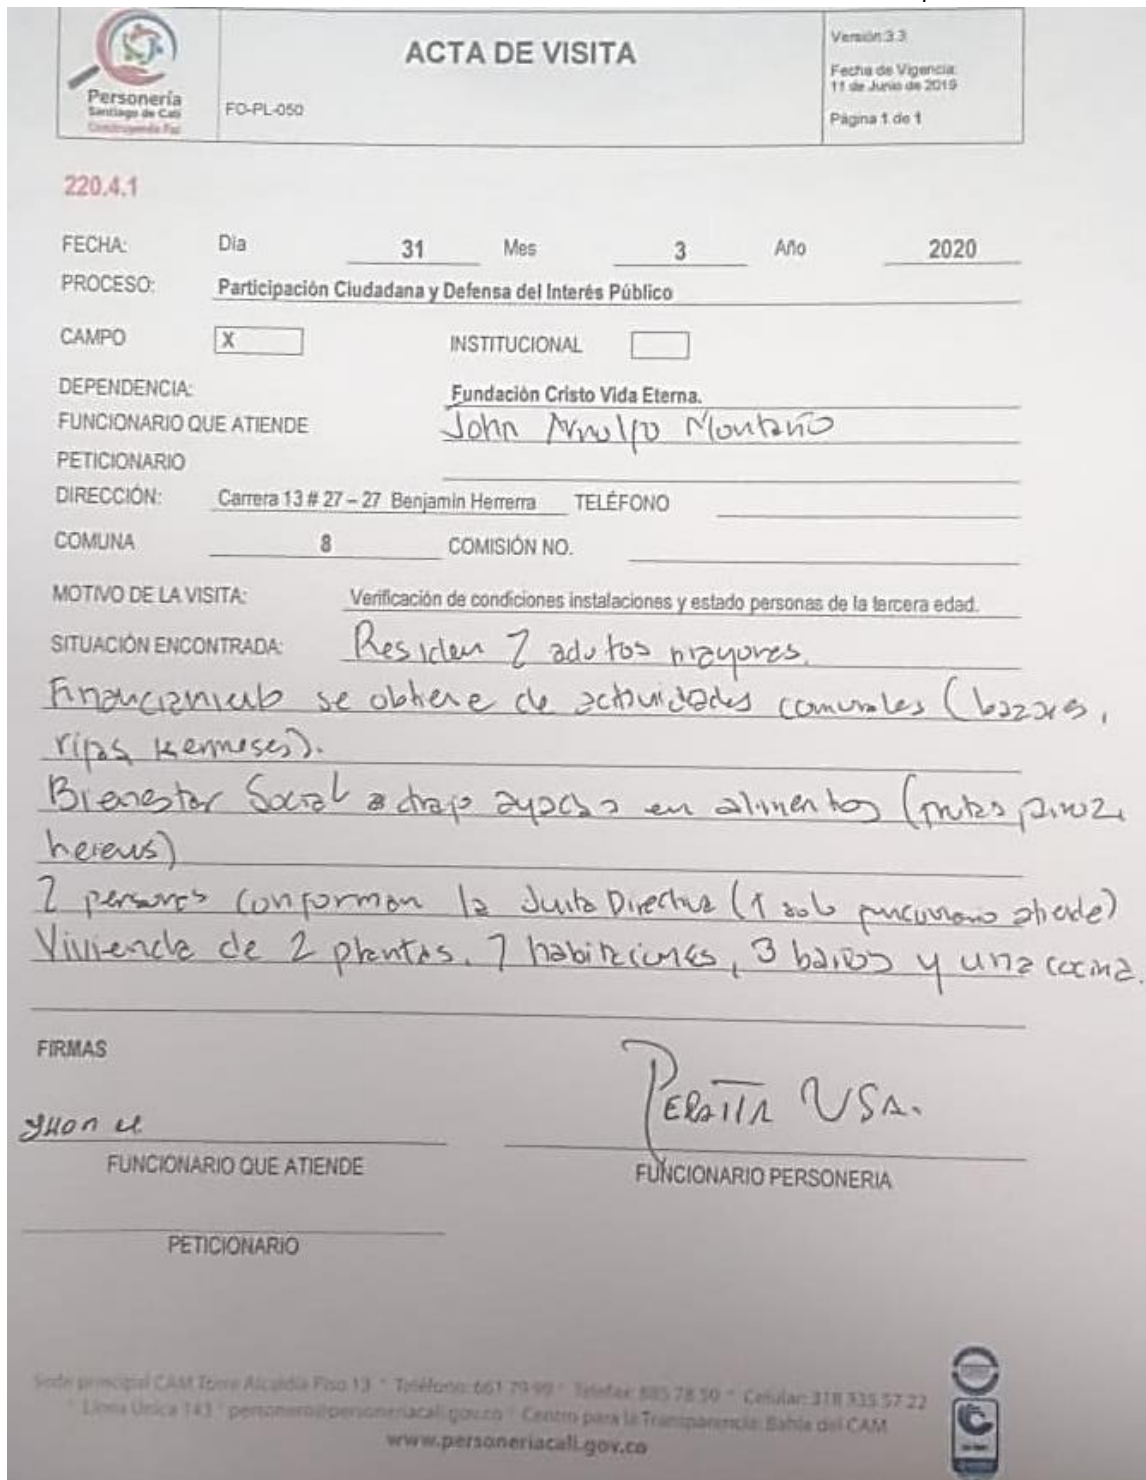 Personería
Santiago de Cali
Construyendo Paz
ACTA DE VISITA
FO-PL-050
Versión:3.3
Fecha de Vigencia:
11 de Junio de 2019
Página 1 de 1
220.4.1
FECHA: Día 31 Mes 3 Año 2020
PROCESO: Participación Ciudadana y Defensa del Interés Público
CAMPO X INSTITUCIONAL
DEPENDENCIA: Fundación Cristo Vida Eterna.
FUNCIONARIO QUE ATIENDE John Arnulfo Montaño
PETICIONARIO
DIRECCIÓN: Carrera 13 # 27 – 27 Benjamin Herrerra TELÉFONO
COMUNA 8 COMISIÓN NO.
MOTIVO DE LA VISITA: Verificación de condiciones instalaciones y estado personas de la tercera edad.
SITUACIÓN ENCONTRADA: Residen 7 adultos mayores.
Financiamiento se obtiene de actividades comunales (bazares,
rifas kermeses).
Bienestar Social en alimentos (frutas
2 personas conforman la Junta Directiva (1 solo funcionario atiende)
Vivienda de 2 plantas. 7 habitaciones, 3 baños y una cocina.
FIRMAS
FUNCIONARIO QUE ATIENDE
FUNCIONARIO PERSONERIA
PETICIONARIO
Sede principal CAM Torre Alcaldía Piso 13 * Teléfono: 661 79 99 * Telefax: 885 78 50 * Celular: 318 335 57 22
* Línea Única 143 * personero@personeriacali.gov.co * Centro para la Transparencia: Bahía del CAM
www.personeriacali.gov.co